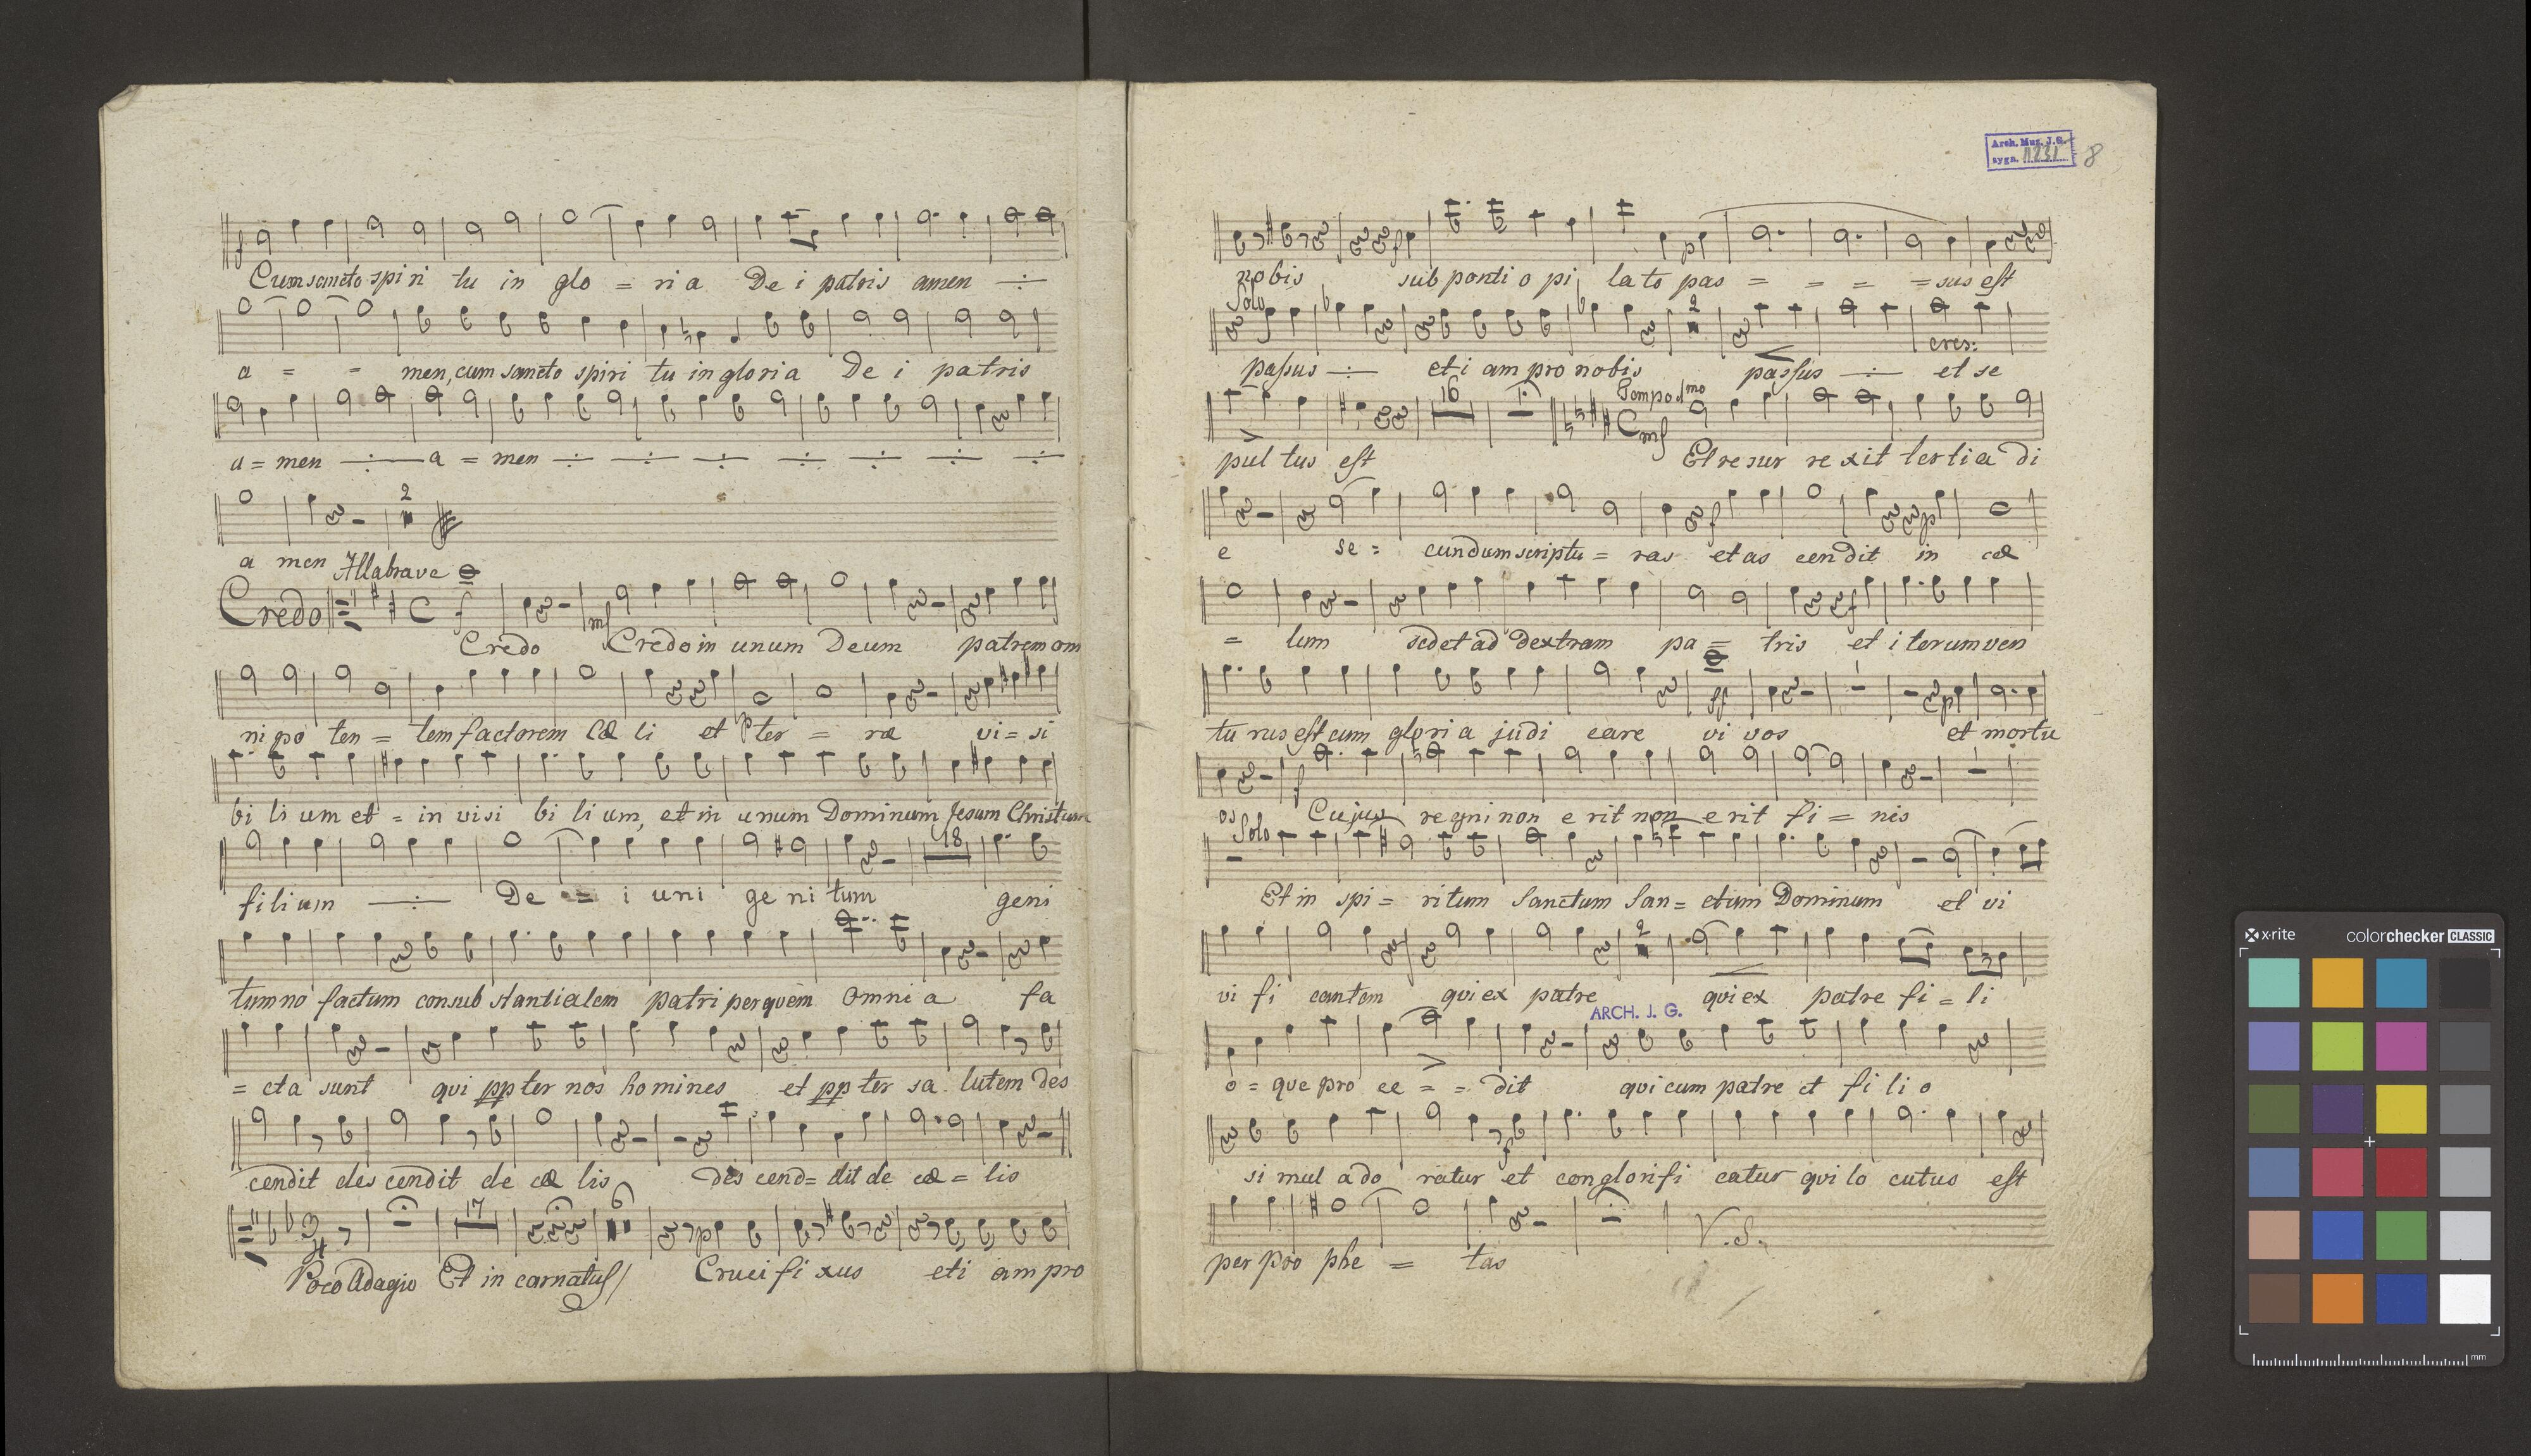 Cum sancto spiri tu in glo = ria De i patris amen ÷
a = = men, cum sancto spiri tu in gloria De i patris
a = men ÷ a = men ÷ ÷ ÷ ÷ ÷ ÷ ÷
2
a men Allabrave
Credo C f mf
Credo Credo in unum Deum patrem om
ni po ten = tem factorem Cæ li et ter = ræ vi = si
bi li um et = in visi bi li um, et in unum Dominum Jesum Christum
18
fili um ÷ De = i uni ge ni tum geni
tum no factum consub stantialem patri per quem omni a fa
= cta sunt qui pp ter nos homines et pp ter sa lutem des
cendit des cendit de cæ lis des cend= dit de cæ = lis
3/4 17 6 p
Poco Adagio Et in carnatus Cruci fi xus eti am pro
Arch. Muz. J.G.
sygn. 1231
8
p p
nobis sub ponti o pi la to pas = = = = sus est
Solo 2 cres:
passus ÷ et i am pro nobis passus ÷ et se
16 1 Tempo 1mo C mf
pul tus est Et resur re xit tertia di
f p
e se = cundum scriptu = ras et as cendit in cæ
f
= lum sedet ad dextram pa = tris et i terum ven
ff p
tu rus est cum glori a judi care vi vos et mortu
f
os Cujus regni non e rit non erit fi = nis
Solo
Et in spi = ritum Sanctum San = ctum Dominum et vi
2
vi fi cantem qui ex patre qui ex patre fi = li
ARCH. J. G.
o = que pro ce = = dit qui cum patre et fi li o
f
si mul ado ratur et conglorifi catur qui lo cutus est
V. S.
per pro phe = tas
x-rite colorchecker CLASSIC
mm